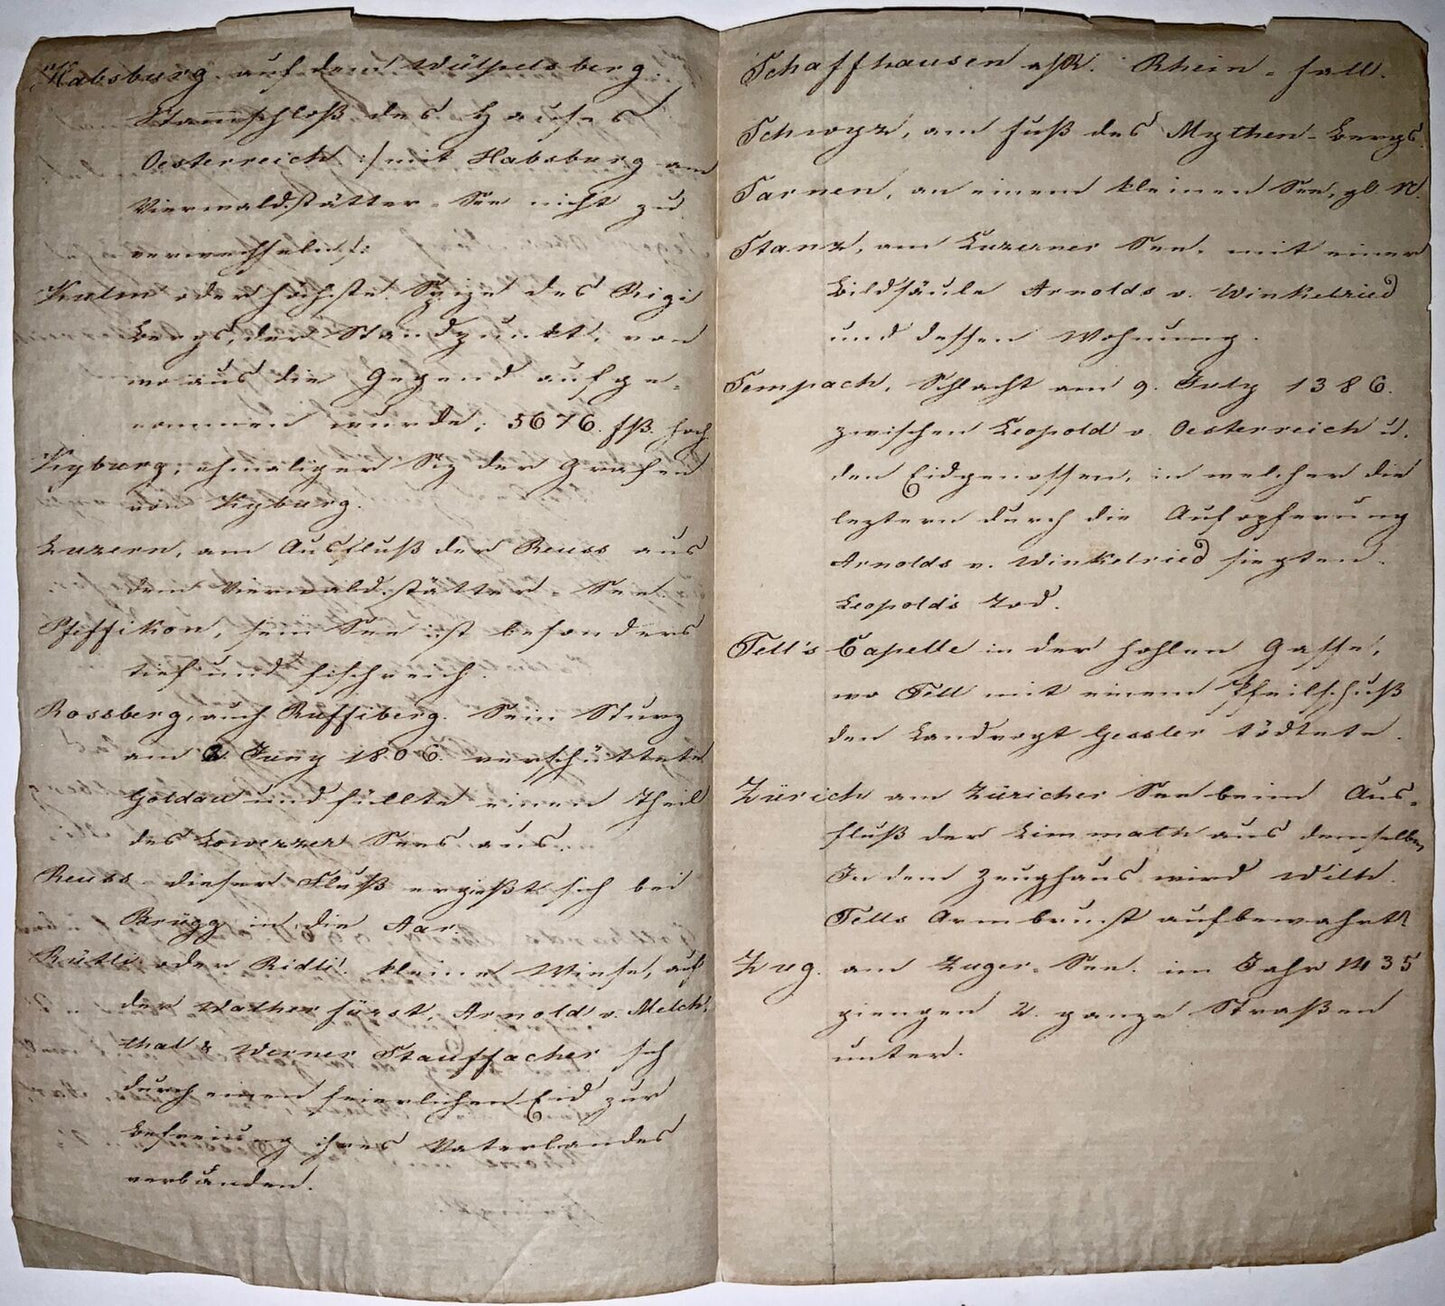 Habsburg auf dem Wülpelsberg.
Stammschloß des Hauses
Oesterreich :/ mit Habsburg am
Vierwaldstätter-See nicht zu
verwechseln /:
Kulm oder höchste Spize des Rigi
Bergs, der Standpunkt, von
wo aus die Gegend aufge-
nommen wurde, 5676. fß. hoch
Kyburg, ehmaliger Siz der Grafen
von Kyburg.
Luzern, am Ausfluß der Reuss aus
dem Vierwaldstätter-See.
Pfeffikon, sein See ist besonders
tief und fischreich.
Rossberg, auch Ruffiberg. Sein Sturz
am 2. Juny 1806. verschüttete
Goldau und füllte einen Theil
des Lowerzer Sees aus.
Reuss dieser Fluß ergießt sich bei
Brügg in die Aar.
Rütli oder Ridli. kleine Wiese, auf
der Walther Fürst, Arnold v. Melch-
thal & Werner Stauffacher sich
durch einen feierlichen Eid zur
Befreiung ihres Vaterlandes
verbanden.
Schaffhausen a/R. Rhein-fall.
Schwyz, am Fuß des Mythen-Bergs.
Sarnen, an einem kleinen See, gl. N.
Stanz, am Luzerner See, mit einer
Bildsäule Arnolds v. Winkelried
und dessen Wohnung.
Sempach, Schlacht am 9. July 1386.
zwischen Leopold v. Oesterreich u.
den Eidgenossen, in welcher die
leztern durch die Aufopferung
Arnolds v. Winkelried siegten.
Leopold's Tod.
Tell's Capelle in der hohlen Gasse,
wo Tell mit einem Pfeilschuß
den Landvogt Gessler tödtete.
Zürich am Züricher See beim Aus-
fluß der Limmath aus demselben,
In dem Zeughaus wird Wilh.
Tells Armbrust aufbewahrt.
Zug. am Zuger-See. im Jahr 1435
giengen 2. ganze Straßen
unter.